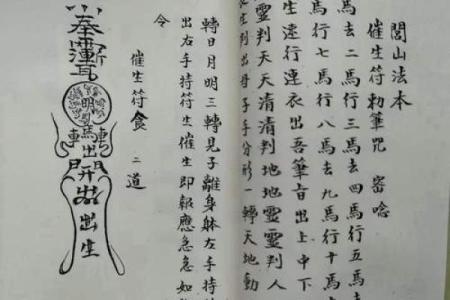 閭山法本
催生符勅筆咒 密唸
馬去二馬行三馬去四馬行五馬去
馬行七馬行八馬去九馬行十馬
生速行連衣出吾筆旨出上中下
靈判天天清清判地地靈靈判人
判出母子手分形一轉天地動
轉日月明三轉見子離身躰左手持
出右手持符生催生即報應急急如
令
催生符食 二道
奉
明
馬
出
出生